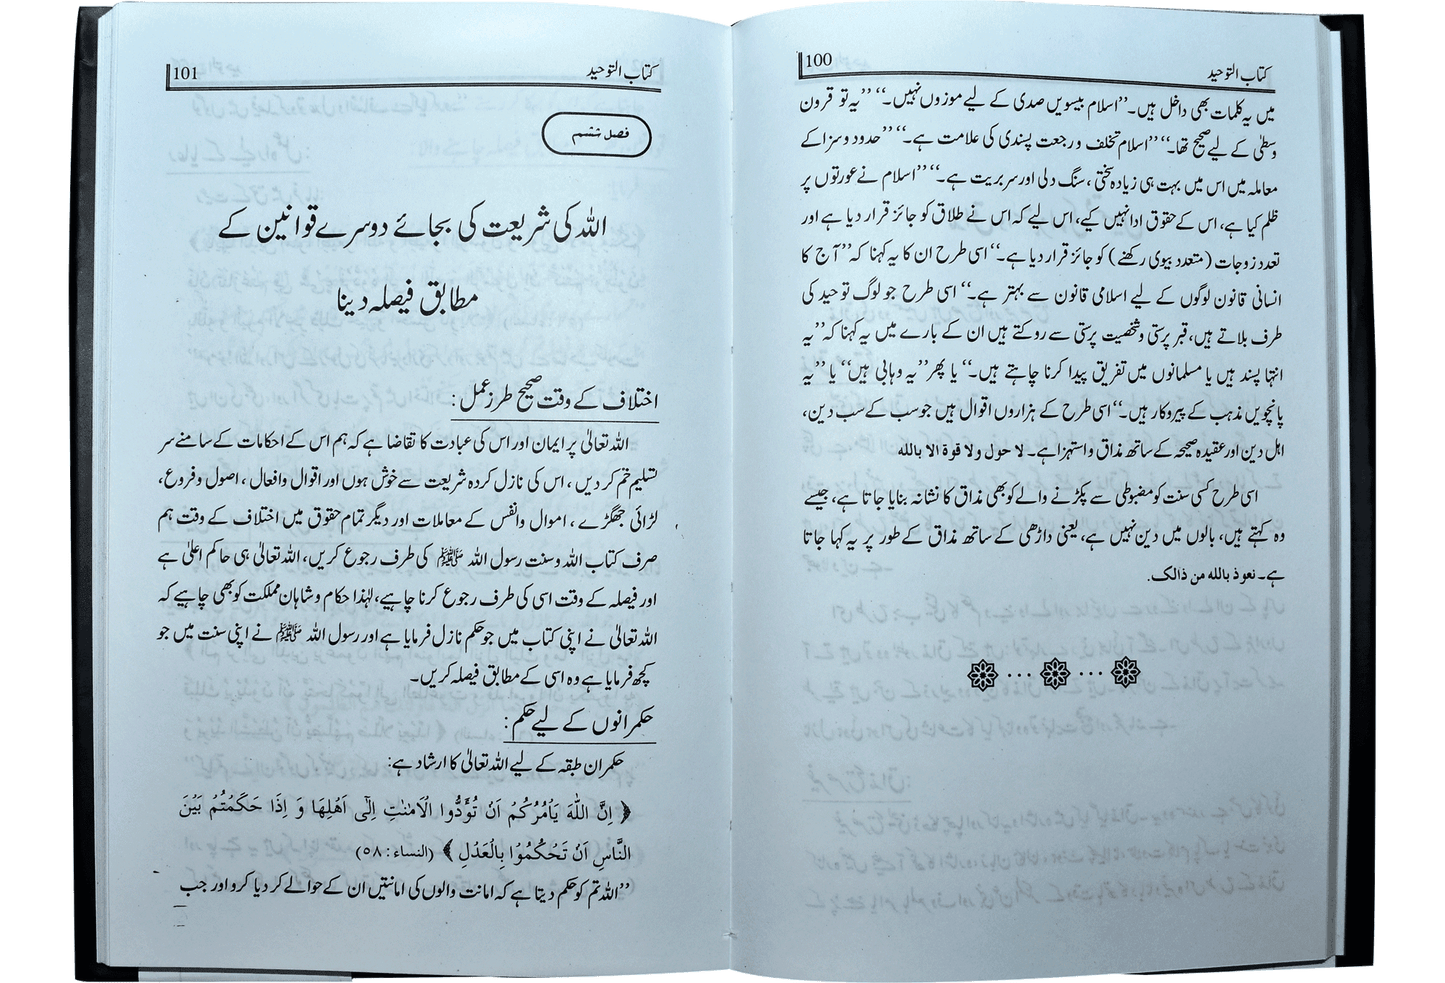 کتاب التوحید
100
میں یہ کلمات بھی داخل ہیں۔ ’’اسلام بیسویں صدی کے لیے موزوں نہیں۔‘‘ ’’یہ تو قرون
وسطیٰ کے لیے صحیح تھا۔‘‘ ’’اسلام تخلف و رجعت پسندی کی علامت ہے۔‘‘ ’’حدود و سزا کے
معاملہ میں اس میں بہت ہی زیادہ سختی، سنگ دلی اور سربریت ہے۔‘‘ ’’اسلام نے عورتوں پر
ظلم کیا ہے، اس کے حقوق ادا نہیں کیے، اس لیے کہ اس نے طلاق کو جائز قرار دیا ہے اور
تعدد زوجات (متعدد بیوی رکھنے) کو جائز قرار دیا ہے۔‘‘ اسی طرح ان کا یہ کہنا کہ ’’آج کا
انسانی قانون لوگوں کے لیے اسلامی قانون سے بہتر ہے۔‘‘ اسی طرح جو لوگ توحید کی
طرف بلاتے ہیں، قبر پرستی و شخصیت پرستی سے روکتے ہیں ان کے بارے میں یہ کہنا کہ ’’یہ
انتہا پسند ہیں یا مسلمانوں میں تفریق پیدا کرنا چاہتے ہیں۔‘‘ یا پھر ’’یہ وہابی ہیں‘‘ یا ’’یہ
پانچویں مذہب کے پیروکار ہیں۔‘‘ اسی طرح کے ہزاروں اقوال ہیں جو سب کے سب دین،
اہل دین اور عقیدہ صحیحہ کے ساتھ مذاق و استہزا ہے۔ لا حول ولا قوة الا بالله
اسی طرح کسی سنت کو مضبوطی سے پکڑنے والے کو بھی مذاق کا نشانہ بنایا جاتا ہے، جیسے
وہ کہتے ہیں، بالوں میں دین نہیں ہے، یعنی داڑھی کے ساتھ مذاق کے طور پر یہ کہا جاتا
ہے۔ نعوذ بالله من ذالك.
کتاب التوحید
101
فصل ششم
اللہ کی شریعت کی بجائے دوسرے قوانین کے
مطابق فیصلہ دینا
اختلاف کے وقت صحیح طرز عمل:
اللہ تعالیٰ پر ایمان اور اس کی عبادت کا تقاضا ہے کہ ہم اس کے احکامات کے سامنے سر
تسلیم خم کر دیں، اس کی نازل کردہ شریعت سے خوش ہوں اور اقوال و افعال، اصول و فروع،
لڑائی جھگڑے، اموال و انفس کے معاملات اور دیگر تمام حقوق میں اختلاف کے وقت ہم
صرف کتاب اللہ و سنت رسول اللہ ﷺ کی طرف رجوع کریں، اللہ تعالیٰ ہی حاکم اعلیٰ ہے
اور فیصلہ کے وقت اسی کی طرف رجوع کرنا چاہیے، لہٰذا حکام و شاہان مملکت کو بھی چاہیے کہ
اللہ تعالیٰ نے اپنی کتاب میں جو حکم نازل فرمایا ہے اور رسول اللہ ﷺ نے اپنی سنت میں جو
کچھ فرمایا ہے وہ اسی کے مطابق فیصلہ کریں۔
حکمرانوں کے لیے حکم:
حکمران طبقہ کے لیے اللہ تعالیٰ کا ارشاد ہے:
﴿ اِنَّ اللّٰهَ يَاْمُرُكُمْ اَنْ تُؤَدُّوا الْاَمٰنٰتِ اِلٰٓى اَهْلِهَا وَ اِذَا حَكَمْتُمْ بَيْنَ
النَّاسِ اَنْ تَحْكُمُوْا بِالْعَدْلِ ﴾ (النساء: ٥٨)
’’اللہ تم کو حکم دیتا ہے کہ امانت والوں کی امانتیں ان کے حوالے کر دیا کرو اور جب